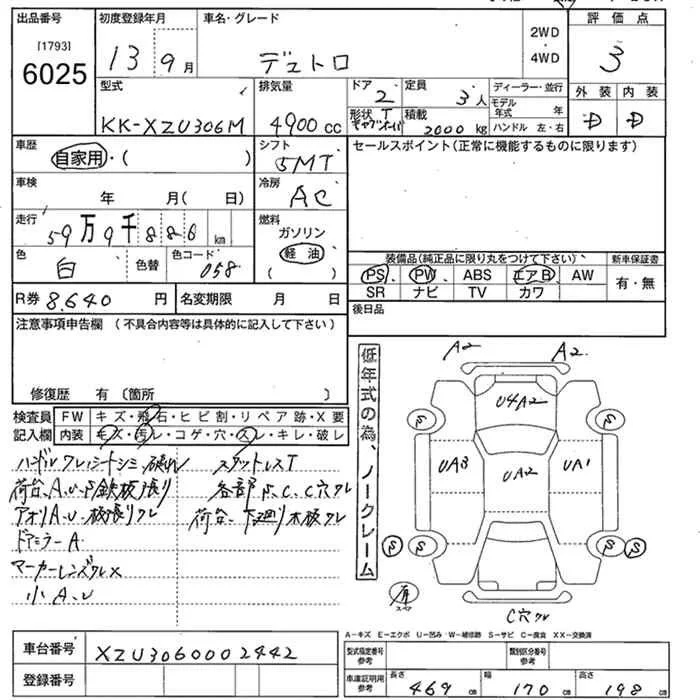 出品番号 初度登録年月 車名・グレード 2WD 評価点
[1793] 4WD
6025 13 9月 デュトロ 3
型式 排気量 ドア 定員 ディーラー・並行 外装 内装
2 3人 モデル年式 年
KK-XZU306M 4900cc 形状 積載 ハンドル 左・右 D D
2000kg
車歴 シフト セールスポイント(正常に機能するものに限ります)
自家用・( ) 5MT
車検 冷房
年 月( 日) AC
走行 燃料
59万9千886km ガソリン
色 色替 色コード 軽油
白 058 ( )
装備品(純正品に限り丸をつけて下さい) 新車保証書
PS PW ABS エアB AW 有・無
SR ナビ TV カワ
R券 8,640円 名変期限 月 日 後日品
注意事項申告欄 (不具合内容等は具体的に記入して下さい)
修復歴 有〔箇所 〕
検査員 FW キズ・飛石・ヒビ割・リペア跡・X要
記入欄 内装 キズ・汚レ・コゲ・穴・スレ・キレ・破レ
ハンドルワレ,シートシミ 破れ スタットレスT
荷台、A.U.S鉄板張り 各部S.C.C穴ワレ
アオリA.U.板張りワレ 荷台、下廻り木板ワレ
ドアミラーA
マーカーレンズワレX
小A.U
低年式の為、ノークレーム
A2 A2
U4A2
S S
UA3 UA2 UA1
S S S S
有
スペア
C穴ワレ
A-キズ E-エクボ U-凹み W-補修跡 S-サビ C-腐食 XX-交換済
車台番号 XZU3060002442
登録番号
型式指定番号 参考 類別区分番号 参考
車庫証明用 参考 長さ 469cm 幅 170cm 高さ 198cm